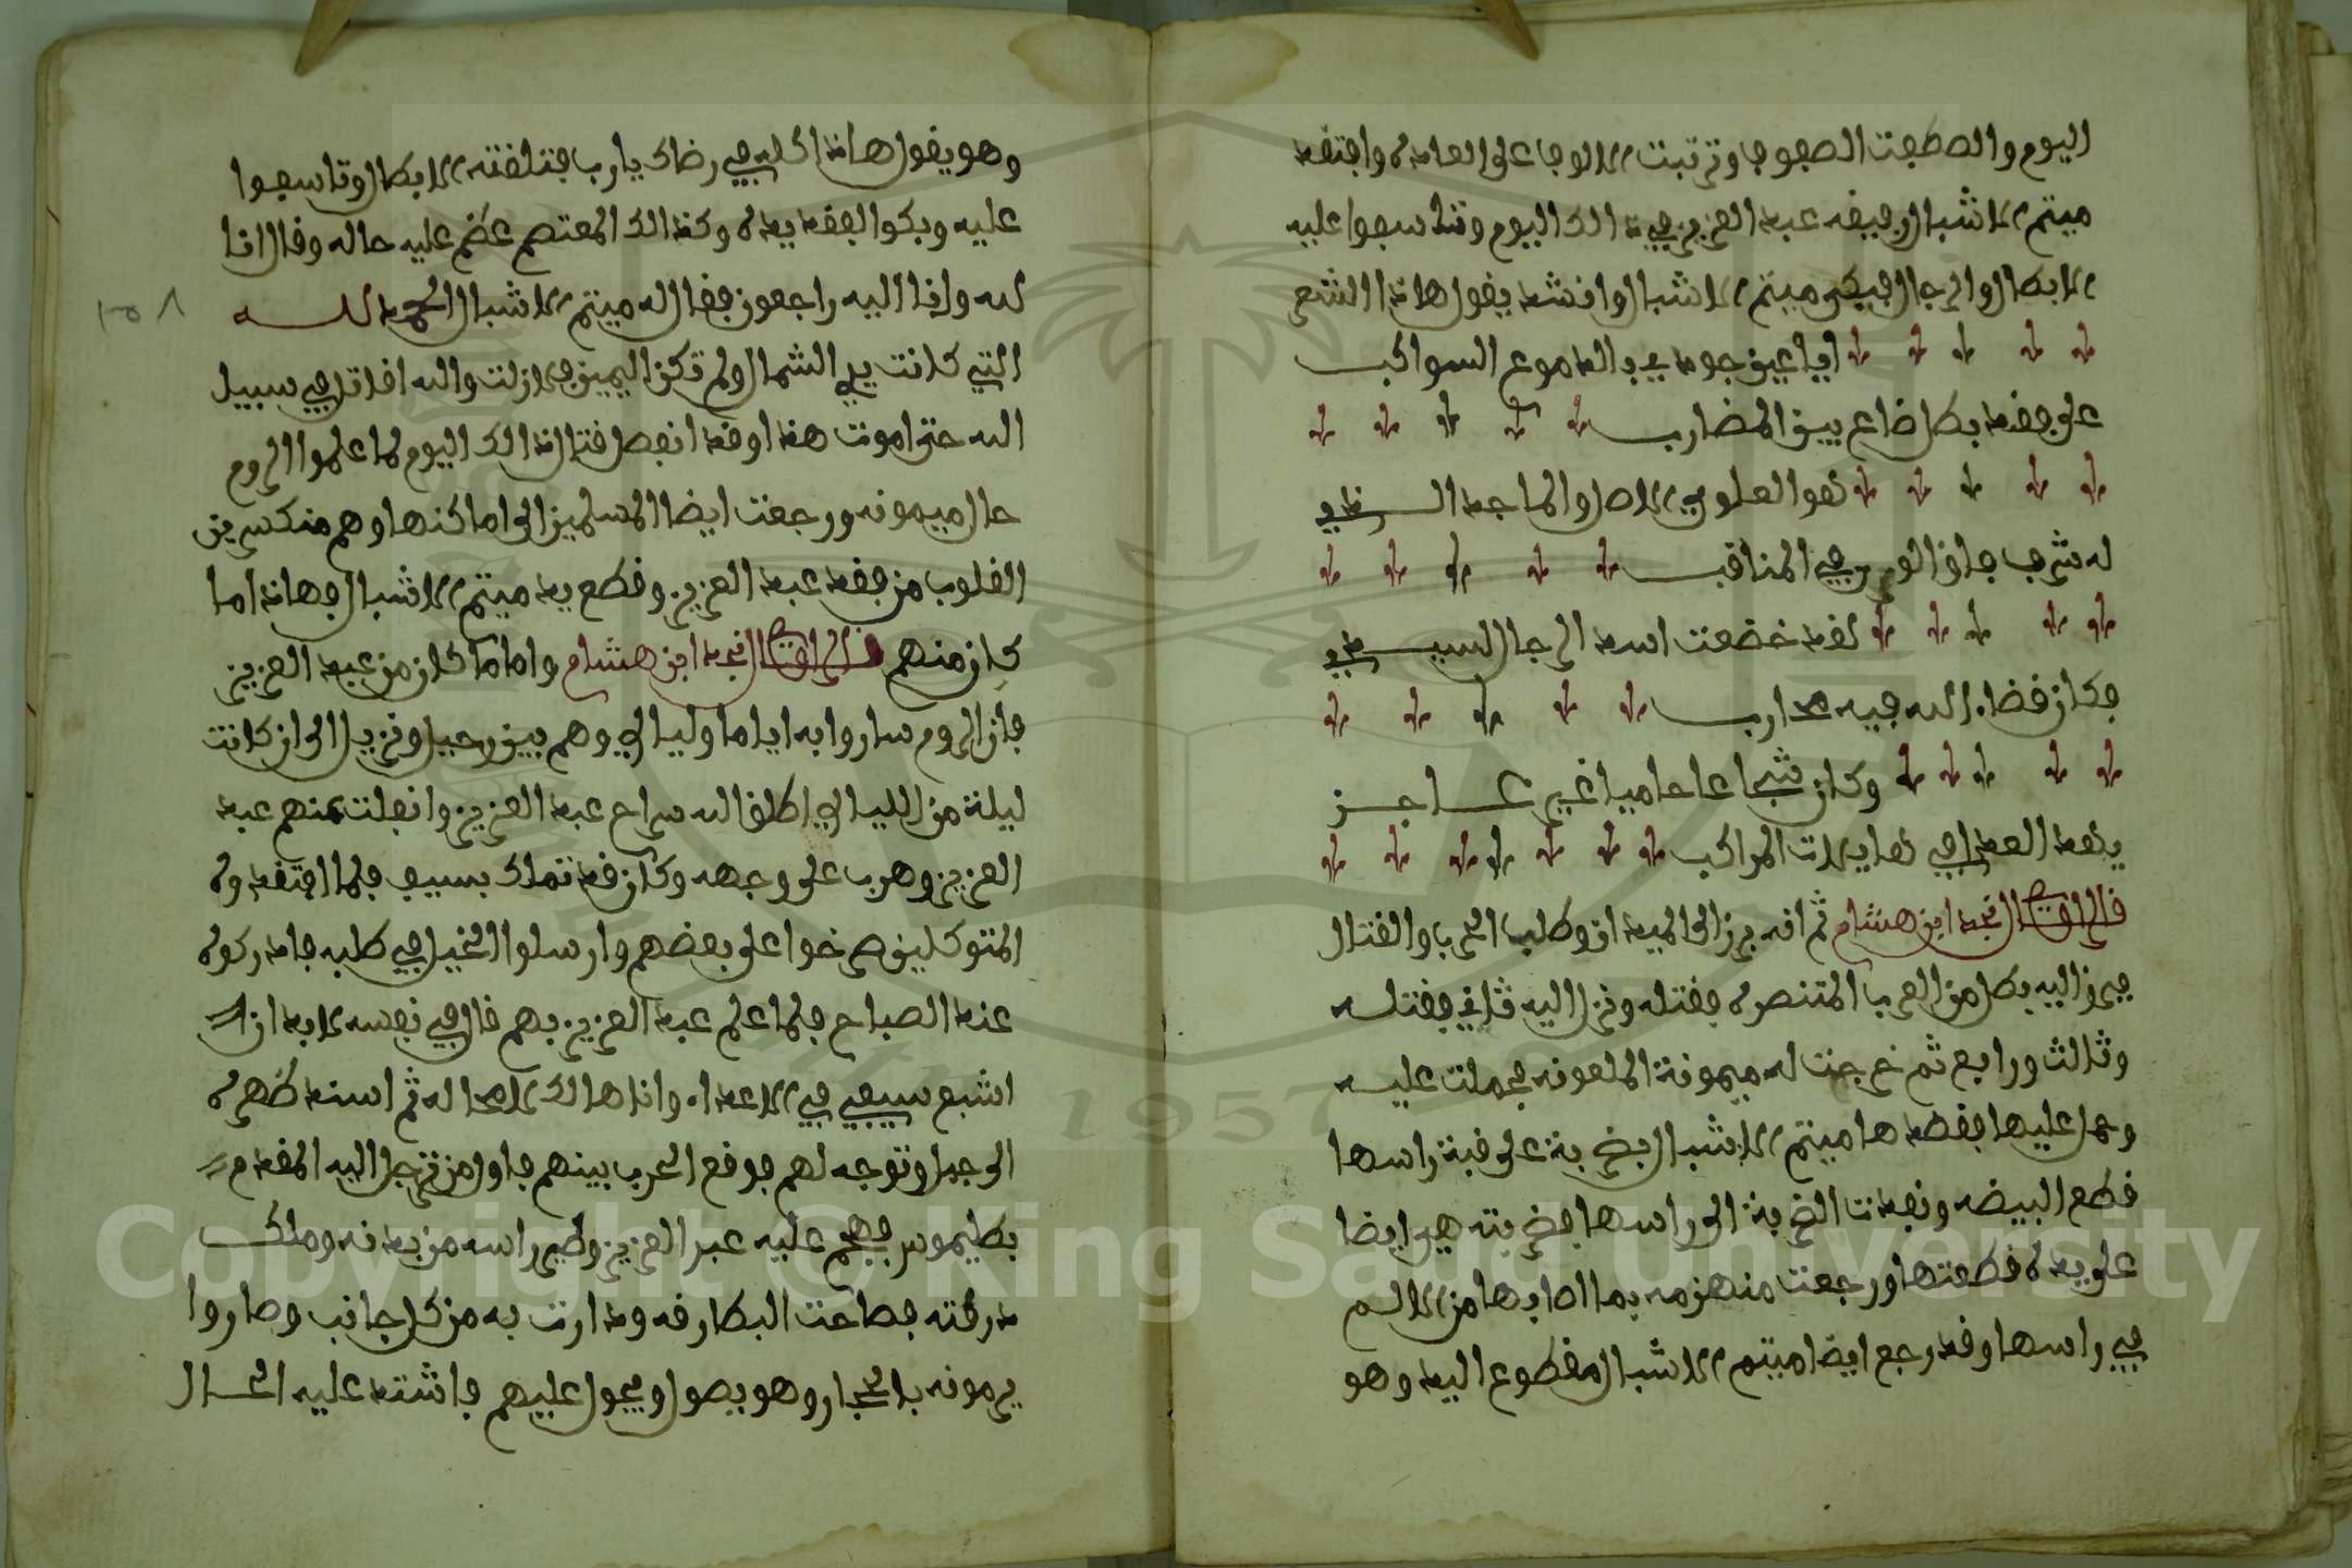 اليوم والصطفت الصفوفا وترتبت الالوفا على العادة وافتقد
ميتم الاشبال رفيقه عبد العزيز في ذالك اليوم وتتاسفوا عليه
الابطال والرجال فبكى ميتم الاشبال وانشد يقول هاذا الشعر
ايا عين جودي بالدموع السواكب
على فقد بطل ضاع بين المضارب
هو العلوي الاصل والماجد الذي
له شرف فاق الورى في المناقب
لقد خضعت اسد الرجال لسيفه
فكان قضاء الله فيه محارب
وكان شجاعا حاميا غير عاجز
يقد العدا في هايلات المراكب
قال الراوي نجد ابن هشام ثم انه برز الى الميدان وطلب الحرب والقتال
فبرز اليه بطل من العرب المتنصرة فقتله ونزل اليه ثاني فقتله
وثالث ورابع ثم خرجت له ميمونة الملعونه فحملت عليه
وحمل عليها فقصدها ميتم الاشبال بضربة على قبة راسها
قطع البيضه ونفدت الضربة الى راسها فضربته هي ايضا
على يده قطعتها ورجعت منهزمه بما اصابها من الالم
في راسها وقد رجع ايضا ميتم الاشبال مقطوع اليد وهو
وهو يقول هاذا كله في رضاك يارب فتلقته الابطال وتاسفوا
عليه وبكوا لفقد يده وكذالك المعتصم عظم عليه حاله وقال انا
لله وانا اليه راجعون فقال له ميتم الاشبال الحمد لله
التي كانت يدي الشمال ولم تكن اليمين فلازلت والله اقاتل في سبيل
الله حتى اموت هذا وقد انفصل قتال ذالك اليوم لما علموا الروم
حال ميمونه ورجعت ايضا المسلمين الى اماكنها وهم منكسرين
القلوب من فقد عبد العزيز وقطع يد ميتم الاشبال فهاذا ما
كان منهم قال الراوي نجد ابن هشام واما ما كان من عبد العزيز
فان الروم ساروا به اياما وليالي وهم بين رحيل ونزيل الى ان كانت
ليلة من الليالي اطلق الله سراح عبد العزيز وانفلت منهم عبد
العزيز وهرب على وجهه وكان قد تملك بسيف فلما افتقدوه
المتوكلين صرخوا على بعضهم وارسلوا الخيل في طلبه فادركوه
عند الصباح فلما علم عبد العزيز بهم قال في نفسه لابد ان
اشبع سيفي في الاعداء وانا هالك لامحاله ثم اسند ظهره
الى جبل وتوجه لهم فوقع الحرب بينهم فاول من ترجل اليه المقدم
بطليموس فهجم عليه عبد العزيز وطير راسه من بدنه وملك
درقته فصاحت البطارقه ودارت به من كل جانب وصاروا
يرمونه بالحجار وهو يصول ويجول عليهم فاشتد عليه الحال
١٥٨
Copyright © King Saud University
1957